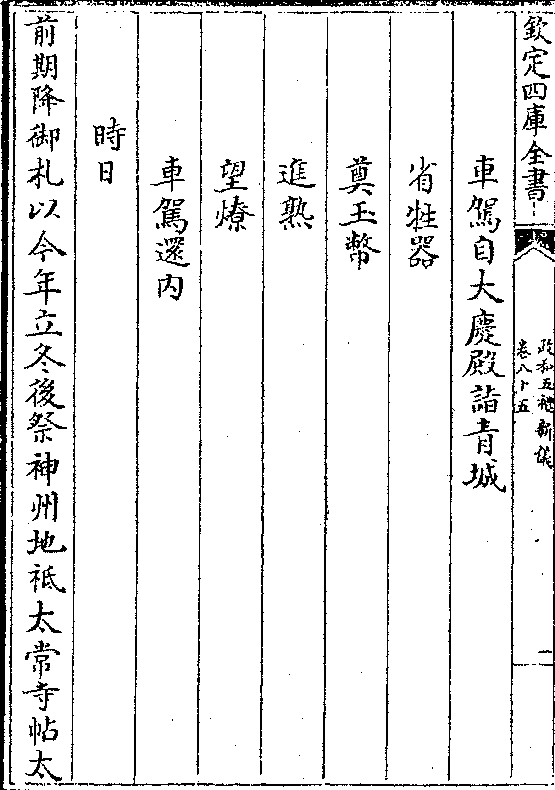 欽定四庫全書
政和五禮新儀
卷八十五
一
車駕自大慶殿詣青城
省牲器
奠玉幣
進熟
望燎
車駕還内
時日
前期降御札以今年立冬後祭神州地祗太常寺帖太